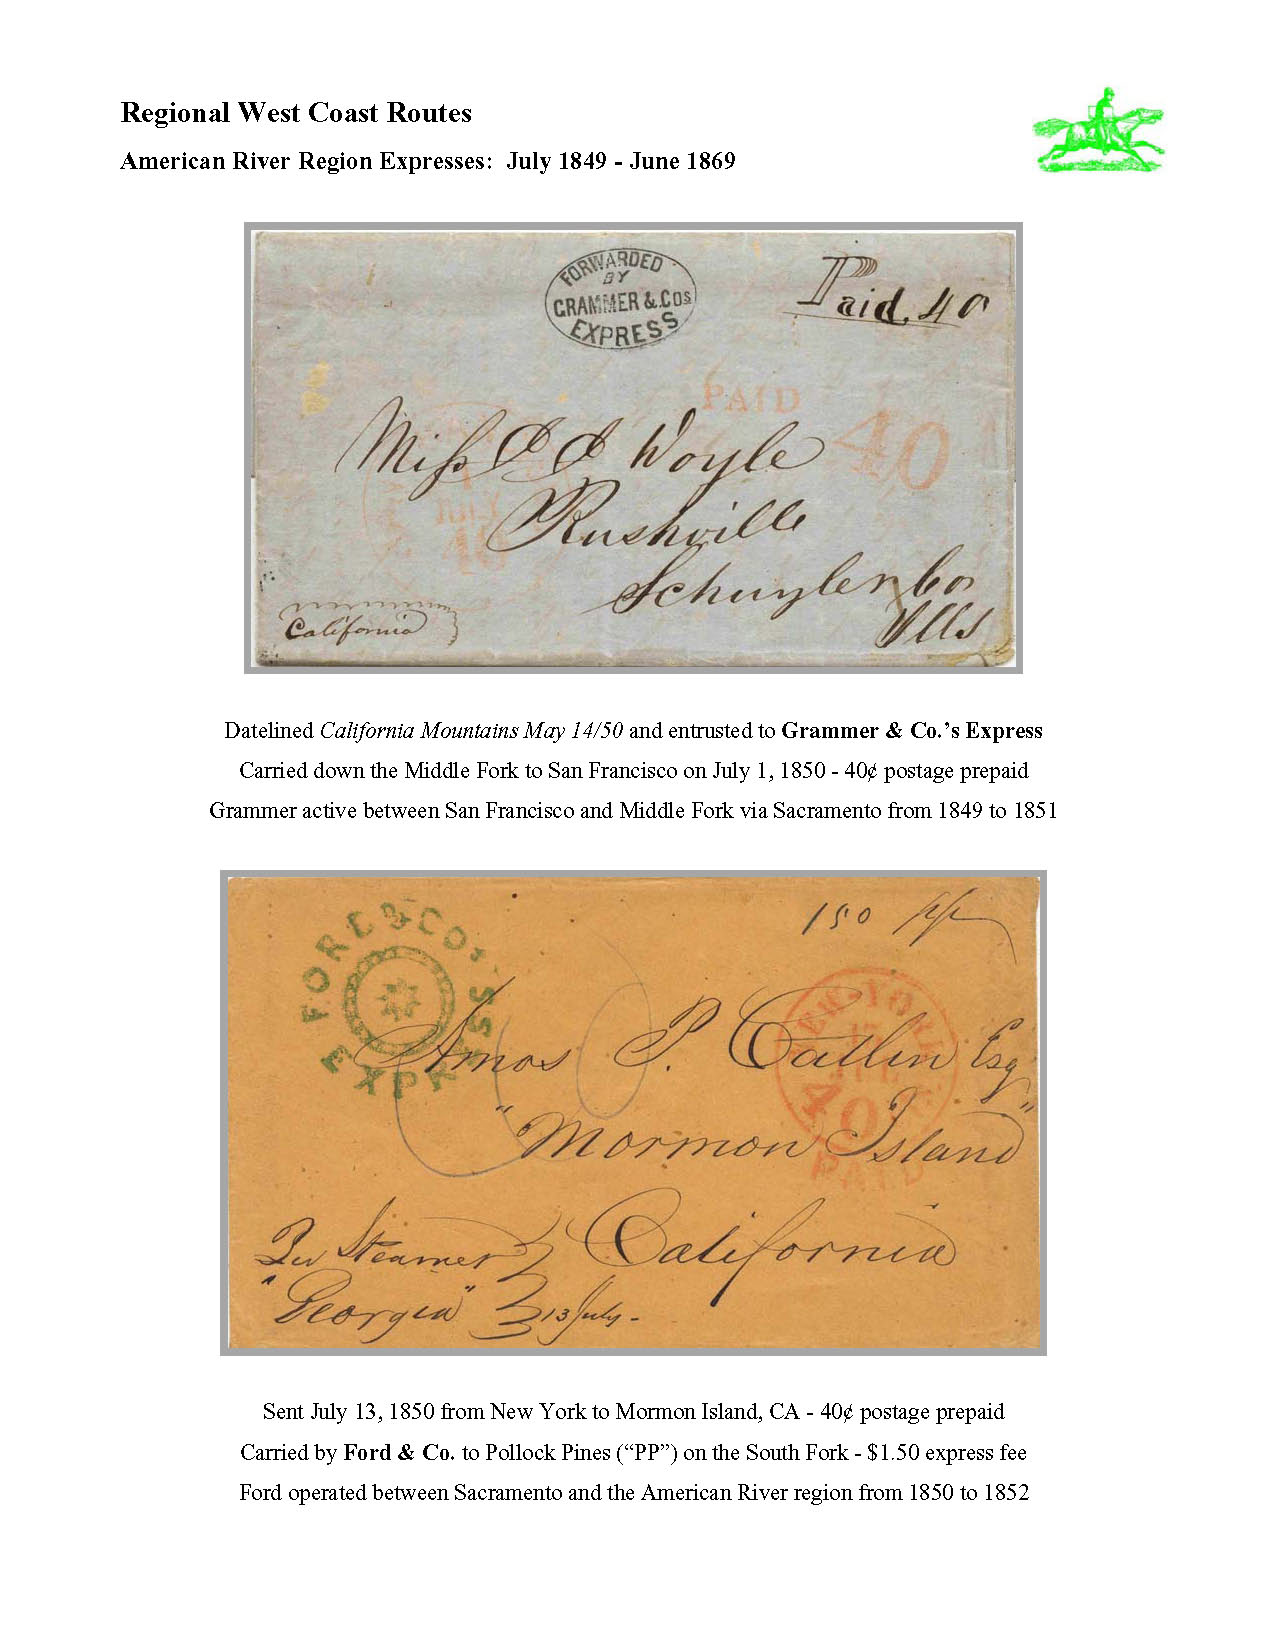 Regional West Coast Routes
American River Region Expresses: July 1849 - June 1869
FORWARDED
BY
GRAMMER & Cos
EXPRESS
Paid. 40
PAID
40
Miss J J Woyle
JULY
Rushville
Schuyler Co
Ills
California
Datelined California Mountains May 14/50 and entrusted to Grammer & Co.’s Express
Carried down the Middle Fork to San Francisco on July 1, 1850 - 40¢ postage prepaid
Grammer active between San Francisco and Middle Fork via Sacramento from 1849 to 1851
FORD & CO'S
EXPRESS
150 pp
NEW-YORK
40
PAID
Amos P. Catlin Esq
"Mormon Island"
California
Per Steamer
"Georgia" 13 July -
Sent July 13, 1850 from New York to Mormon Island, CA - 40¢ postage prepaid
Carried by Ford & Co. to Pollock Pines (“PP”) on the South Fork - $1.50 express fee
Ford operated between Sacramento and the American River region from 1850 to 1852